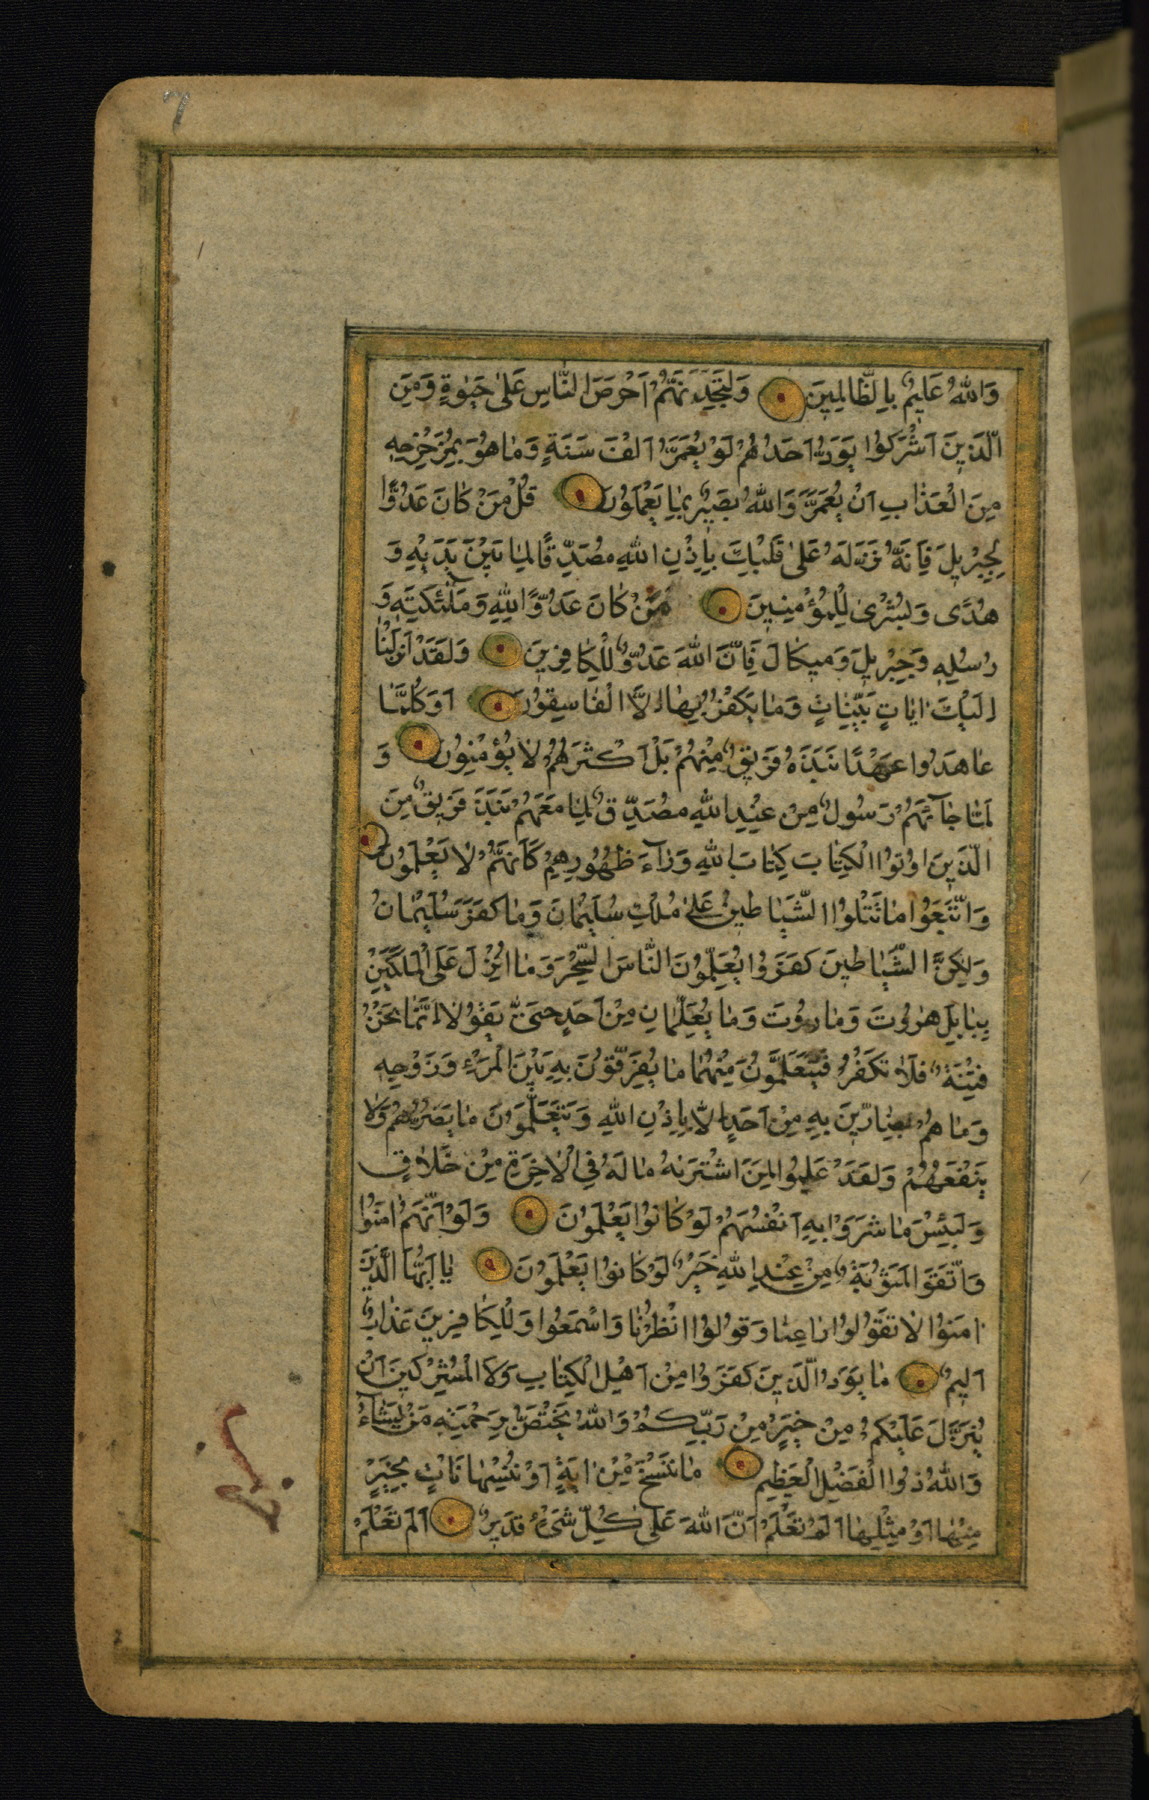 7
وَاللهُ عَلِيمٌ بِالظَّالِمِينَ وَلَتَجِدَنَّهُمْ اَحْرَصَ النَّاسِ عَلىٰ حَيٰوةٍ وَمِنَ
الَّذِينَ اَشْرَكُوا يَوَدُّ اَحَدُهُمْ لَوْ يُعَمَّرُ اَلْفَ سَنَةٍ وَمَا هُوَ بِمُزَحْزِحِهِ
مِنَ الْعَذَابِ اَنْ يُعَمَّرَ وَاللهُ بَصِيرٌ بِمَا يَعْمَلُونَ قُلْ مَنْ كَانَ عَدُوًّا
لِجِبْرِيلَ فَاِنَّهُ نَزَّلَهُ عَلىٰ قَلْبِكَ بِاِذْنِ اللهِ مُصَدِّقًا لِمَا بَيْنَ يَدَيْهِ وَ
هُدًى وَبُشْرىٰ لِلْمُؤْمِنِينَ مَنْ كَانَ عَدُوًّا لِلهِ وَمَلٰٓئِكَتِهِ وَ
رُسُلِهِ وَجِبْرِيلَ وَمِيكَالَ فَاِنَّ اللهَ عَدُوٌّ لِلْكَافِرِينَ وَلَقَدْ اَنْزَلْنَا
اِلَيْكَ اٰيَاتٍ بَيِّنَاتٍ وَمَا يَكْفُرُ بِهَا اِلَّا الْفَاسِقُونَ اَوَكُلَّمَا
عَاهَدُوا عَهْدًا نَبَذَهُ فَرِيقٌ مِنْهُمْ بَلْ اَكْثَرُهُمْ لَا يُؤْمِنُونَ وَ
لَمَّا جَآءَهُمْ رَسُولٌ مِنْ عِنْدِ اللهِ مُصَدِّقٌ لِمَا مَعَهُمْ نَبَذَ فَرِيقٌ مِنَ
الَّذِينَ اُوتُوا الْكِتَابَ كِتَابَ اللهِ وَرَآءَ ظُهُورِهِمْ كَاَنَّهُمْ لَا يَعْلَمُونَ
وَاتَّبَعُوا مَا تَتْلُوا الشَّيَاطِينُ عَلىٰ مُلْكِ سُلَيْمَانَ وَمَا كَفَرَ سُلَيْمَانُ
وَلٰكِنَّ الشَّيَاطِينَ كَفَرُوا يُعَلِّمُونَ النَّاسَ السِّحْرَ وَمَا اُنْزِلَ عَلَى الْمَلَكَيْنِ
بِبَابِلَ هَارُوتَ وَمَارُوتَ وَمَا يُعَلِّمَانِ مِنْ اَحَدٍ حَتّىٰ يَقُولَا اِنَّمَا نَحْنُ
فِتْنَةٌ فَلَا تَكْفُرْ فَيَتَعَلَّمُونَ مِنْهُمَا مَا يُفَرِّقُونَ بِهِ بَيْنَ الْمَرْءِ وَزَوْجِهِ
وَمَا هُمْ بِضَارِّينَ بِهِ مِنْ اَحَدٍ اِلَّا بِاِذْنِ اللهِ وَيَتَعَلَّمُونَ مَا يَضُرُّهُمْ وَلَا
يَنْفَعُهُمْ وَلَقَدْ عَلِمُوا لَمَنِ اشْتَرٰىهُ مَا لَهُ فِي الْاٰخِرَةِ مِنْ خَلَاقٍ
وَلَبِئْسَ مَا شَرَوْا بِهِ اَنْفُسَهُمْ لَوْ كَانُوا يَعْلَمُونَ وَلَوْ اَنَّهُمْ اٰمَنُوا
وَاتَّقَوْا لَمَثُوبَةٌ مِنْ عِنْدِ اللهِ خَيْرٌ لَوْ كَانُوا يَعْلَمُونَ يَا اَيُّهَا الَّذِينَ
اٰمَنُوا لَا تَقُولُوا رَاعِنَا وَقُولُوا انْظُرْنَا وَاسْمَعُوا وَلِلْكَافِرِينَ عَذَابٌ
اَلِيمٌ مَا يَوَدُّ الَّذِينَ كَفَرُوا مِنْ اَهْلِ الْكِتَابِ وَلَا الْمُشْرِكِينَ اَنْ
يُنَزَّلَ عَلَيْكُمْ مِنْ خَيْرٍ مِنْ رَبِّكُمْ وَاللهُ يَخْتَصُّ بِرَحْمَتِهِ مَنْ يَشَآءُ
وَاللهُ ذُوا الْفَضْلِ الْعَظِيمِ مَا نَنْسَخْ مِنْ اٰيَةٍ اَوْ نُنْسِهَا نَاْتِ بِخَيْرٍ
مِنْهَا اَوْ مِثْلِهَا اَلَمْ تَعْلَمْ اَنَّ اللهَ عَلىٰ كُلِّ شَيْءٍ قَدِيرٌ اَلَمْ تَعْلَمْ